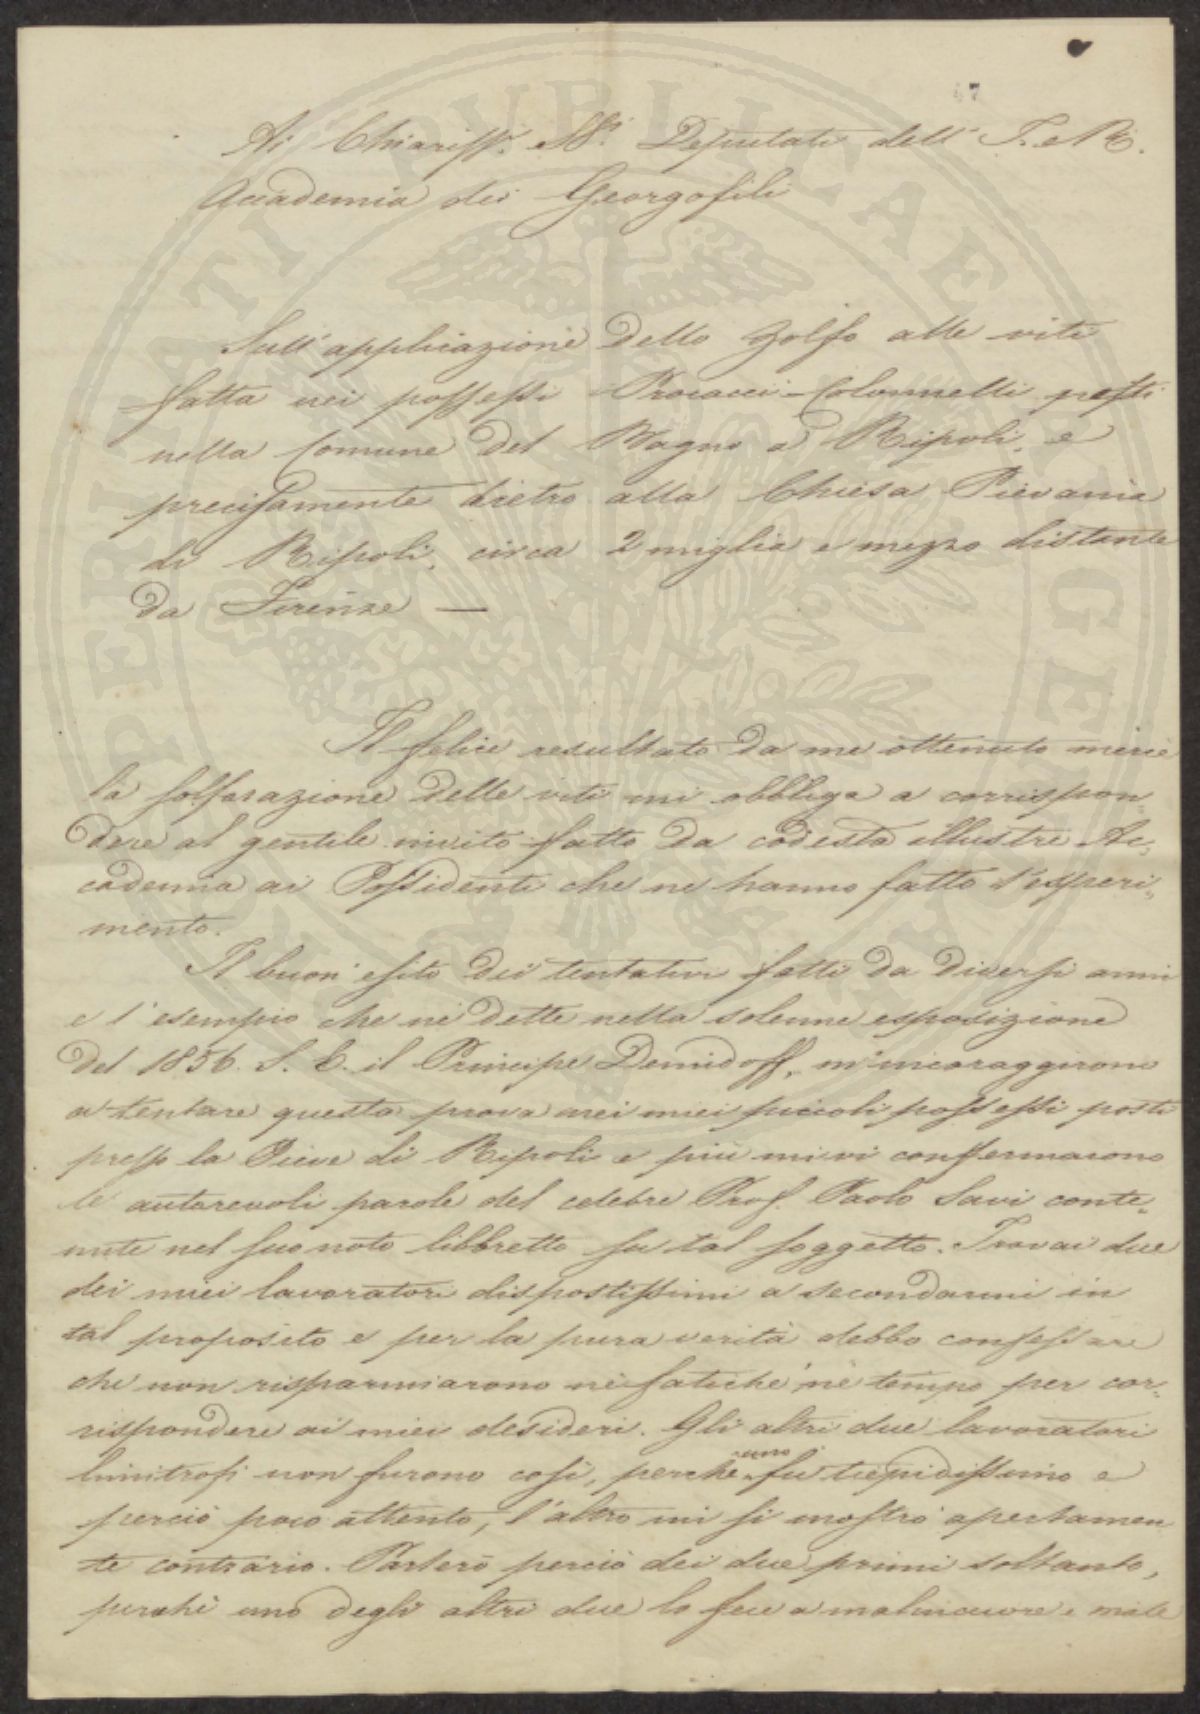 47
Ai Chiariss. SS.i Deputati dell' I. e R.
Accademia dei Georgofili
Sull'applicazione dello Zolfo alle viti
fatta nei possessi Procacci-Colonnelli posti
nella Comune del Bagno a Ripoli, e
precisamente dietro alla Chiesa Pievania
di Ripoli, circa 2 miglia e mezzo distante
da Firenze —
Il felice resultato da me ottenuto mercè
la solforazione delle viti mi obbliga a corrispon-
dere al gentile invito fatto da codesta illustre Ac-
cademia ai Possidenti che ne hanno fatto l'esperi-
mento.
Il buon esito dei tentativi fatti da diversi anni
e l'esempio che ne dette nella solenne esposizione
del 1856. S. E. il Principe Demidoff, m'incoraggirono
a tentare questa prova nei miei piccoli possessi posti
presso la Pieve di Ripoli e più mi vi confermarono
le autorevoli parole del celebre Prof. Paolo Savi conte-
nute nel suo noto libbretto su tal soggetto. Trovai due
dei miei lavoratori dispostissimi a secondarmi in
tal proposito e per la pura verità debbo confessare
che non risparmiarono nè fatiche, nè tempo per cor-
rispondere ai miei desideri. Gli altri due lavoratori
limitrofi non furono così, perchè uno fu tiepidissimo e
perciò poco attento, l'altro mi si mostrò apertamen-
te contrario. Parlerò perciò dei due primi soltanto,
perchè uno degli altri due lo fece a malincuore e male
PERINATI PVBLICAE